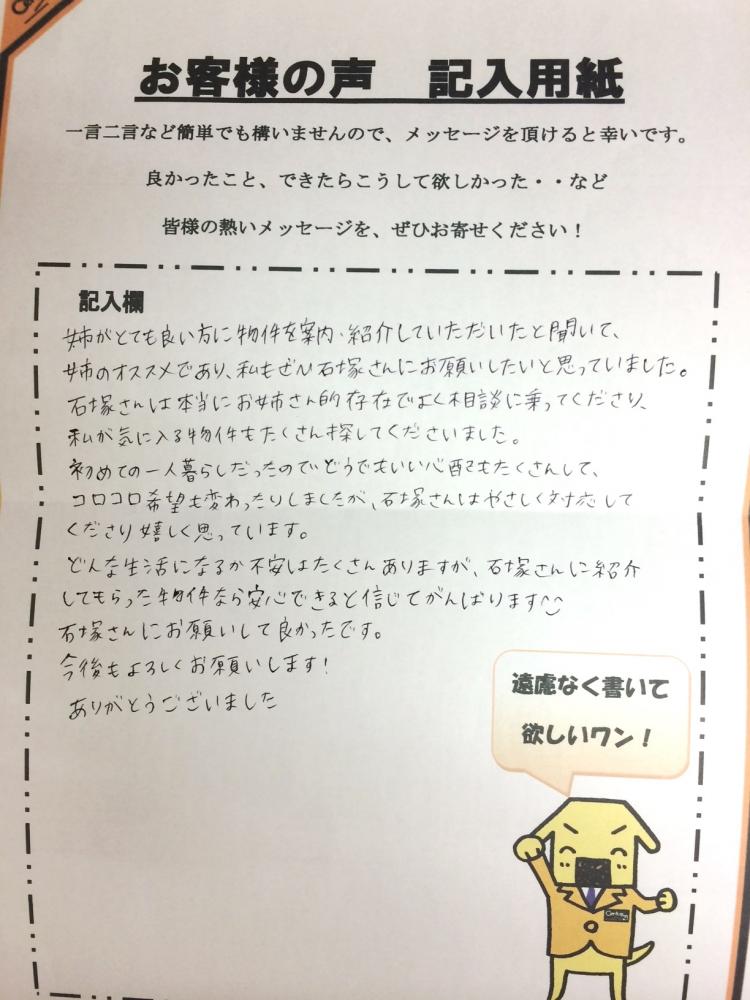 お客様の声　記入用紙
一言二言など簡単でも構いませんので、メッセージを頂けると幸いです。
良かったこと、できたらこうして欲しかった・・など
皆様の熱いメッセージを、ぜひお寄せください！
記入欄
姉がとても良い方に物件を案内・紹介していただいたと聞いて、
姉のオススメであり、私もぜひ石塚さんにお願いしたいと思っていました。
石塚さんは本当にお姉さん的存在でよく相談に乗ってくださり、
私が気に入る物件もたくさん探してくださいました。
初めての一人暮らしだったのでどうでもいい心配もたくさんして、
コロコロ希望も変わったりしましたが、石塚さんはやさしく対応して
くださり嬉しく思っています。
どんな生活になるか不安はたくさんありますが、石塚さんに紹介
してもらった物件なら安心できると信じてがんばります
石塚さんにお願いして良かったです。
今後もよろしくお願いします！
ありがとうございました
遠慮なく書いて
欲しいワン！